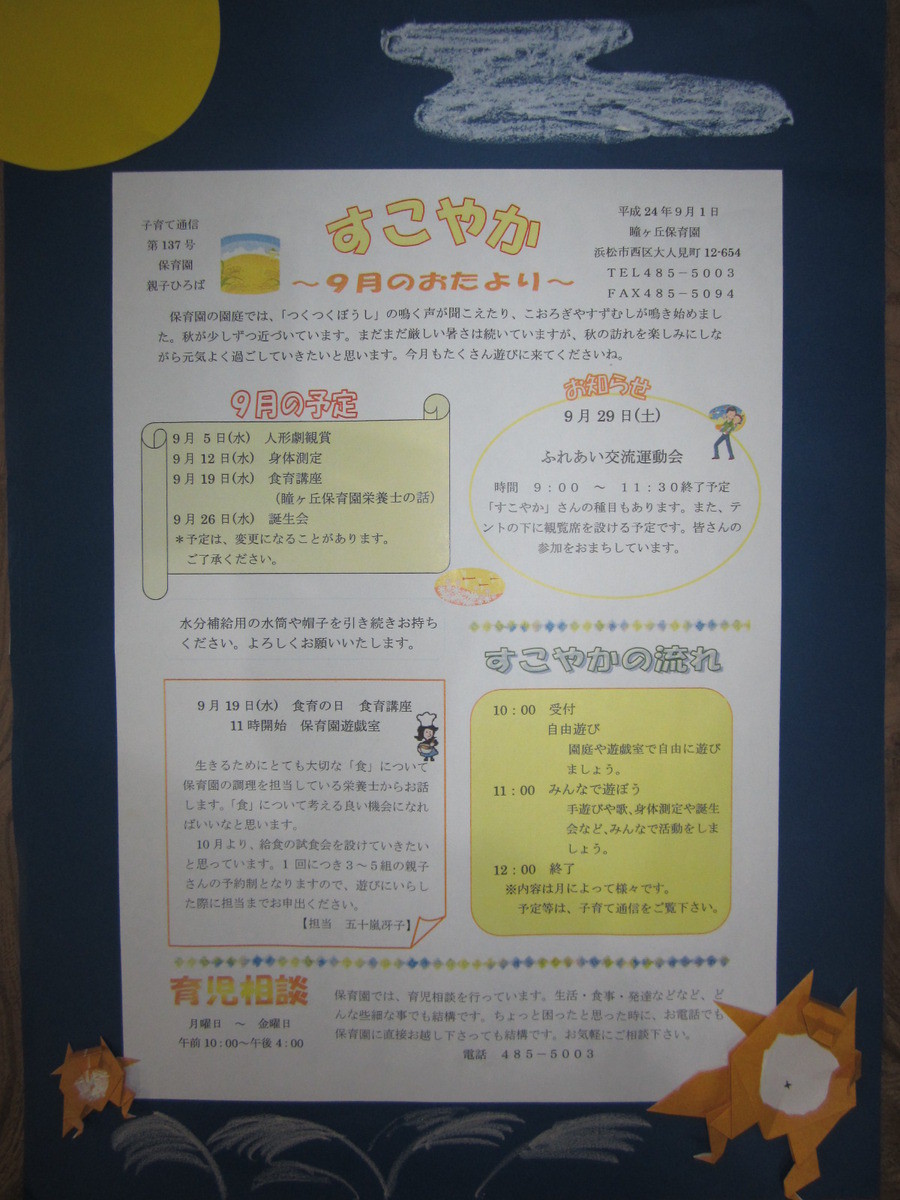 子育て通信
第137号
保育園
親子ひろば
すこやか
～９月のおたより～
平成24年9月1日
瞳ヶ丘保育園
浜松市西区大人見町12-654
ＴＥＬ４８５－５００３
ＦＡＸ４８５－５０９４
保育園の園庭では、「つくつくぼうし」の鳴く声が聞こえたり、こおろぎやすずむしが鳴き始めまし
た。秋が少しずつ近づいています。まだまだ厳しい暑さは続いていますが、秋の訪れを楽しみにしな
がら元気よく過ごしていきたいと思います。今月もたくさん遊びに来てくださいね。
９月の予定
9月 5日(水) 人形劇観賞
9月12日(水) 身体測定
9月19日(水) 食育講座
（瞳ヶ丘保育園栄養士の話）
9月26日(水) 誕生会
＊予定は、変更になることがあります。
ご了承ください。
お知らせ
9月29日(土)
ふれあい交流運動会
時間 ９：００ ～ １１：３０終了予定
「すこやか」さんの種目もあります。また、テ
ントの下に観覧席を設ける予定です。皆さんの
参加をおまちしています。
水分補給用の水筒や帽子を引き続きお持ち
ください。よろしくお願いいたします。
9月19日(水) 食育の日 食育講座
11時開始 保育園遊戯室
生きるためにとても大切な「食」について
保育園の調理を担当している栄養士からお話
します。「食」について考える良い機会になれ
ばいいなと思います。
10月より、給食の試食会を設けていきたい
と思っています。１回につき３～５組の親子
さんの予約制となりますので、遊びにいらし
た際に担当までお申出ください。
【担当 五十嵐冴子】
すこやかの流れ
10：00 受付
自由遊び
園庭や遊戯室で自由に遊び
ましょう。
11：00 みんなで遊ぼう
手遊びや歌、身体測定や誕生
会など、みんなで活動をしま
しょう。
12：00 終了
※内容は月によって様々です。
予定等は、子育て通信をご覧下さい。
育児相談
月曜日 ～ 金曜日
午前10：00～午後4：00
保育園では、育児相談を行っています。生活・食事・発達などなど、ど
んな些細な事でも結構です。ちょっと困ったと思った時に、お電話でも
保育園に直接お越し下さっても結構です。お気軽にご相談下さい。
電話 ４８５－５００３